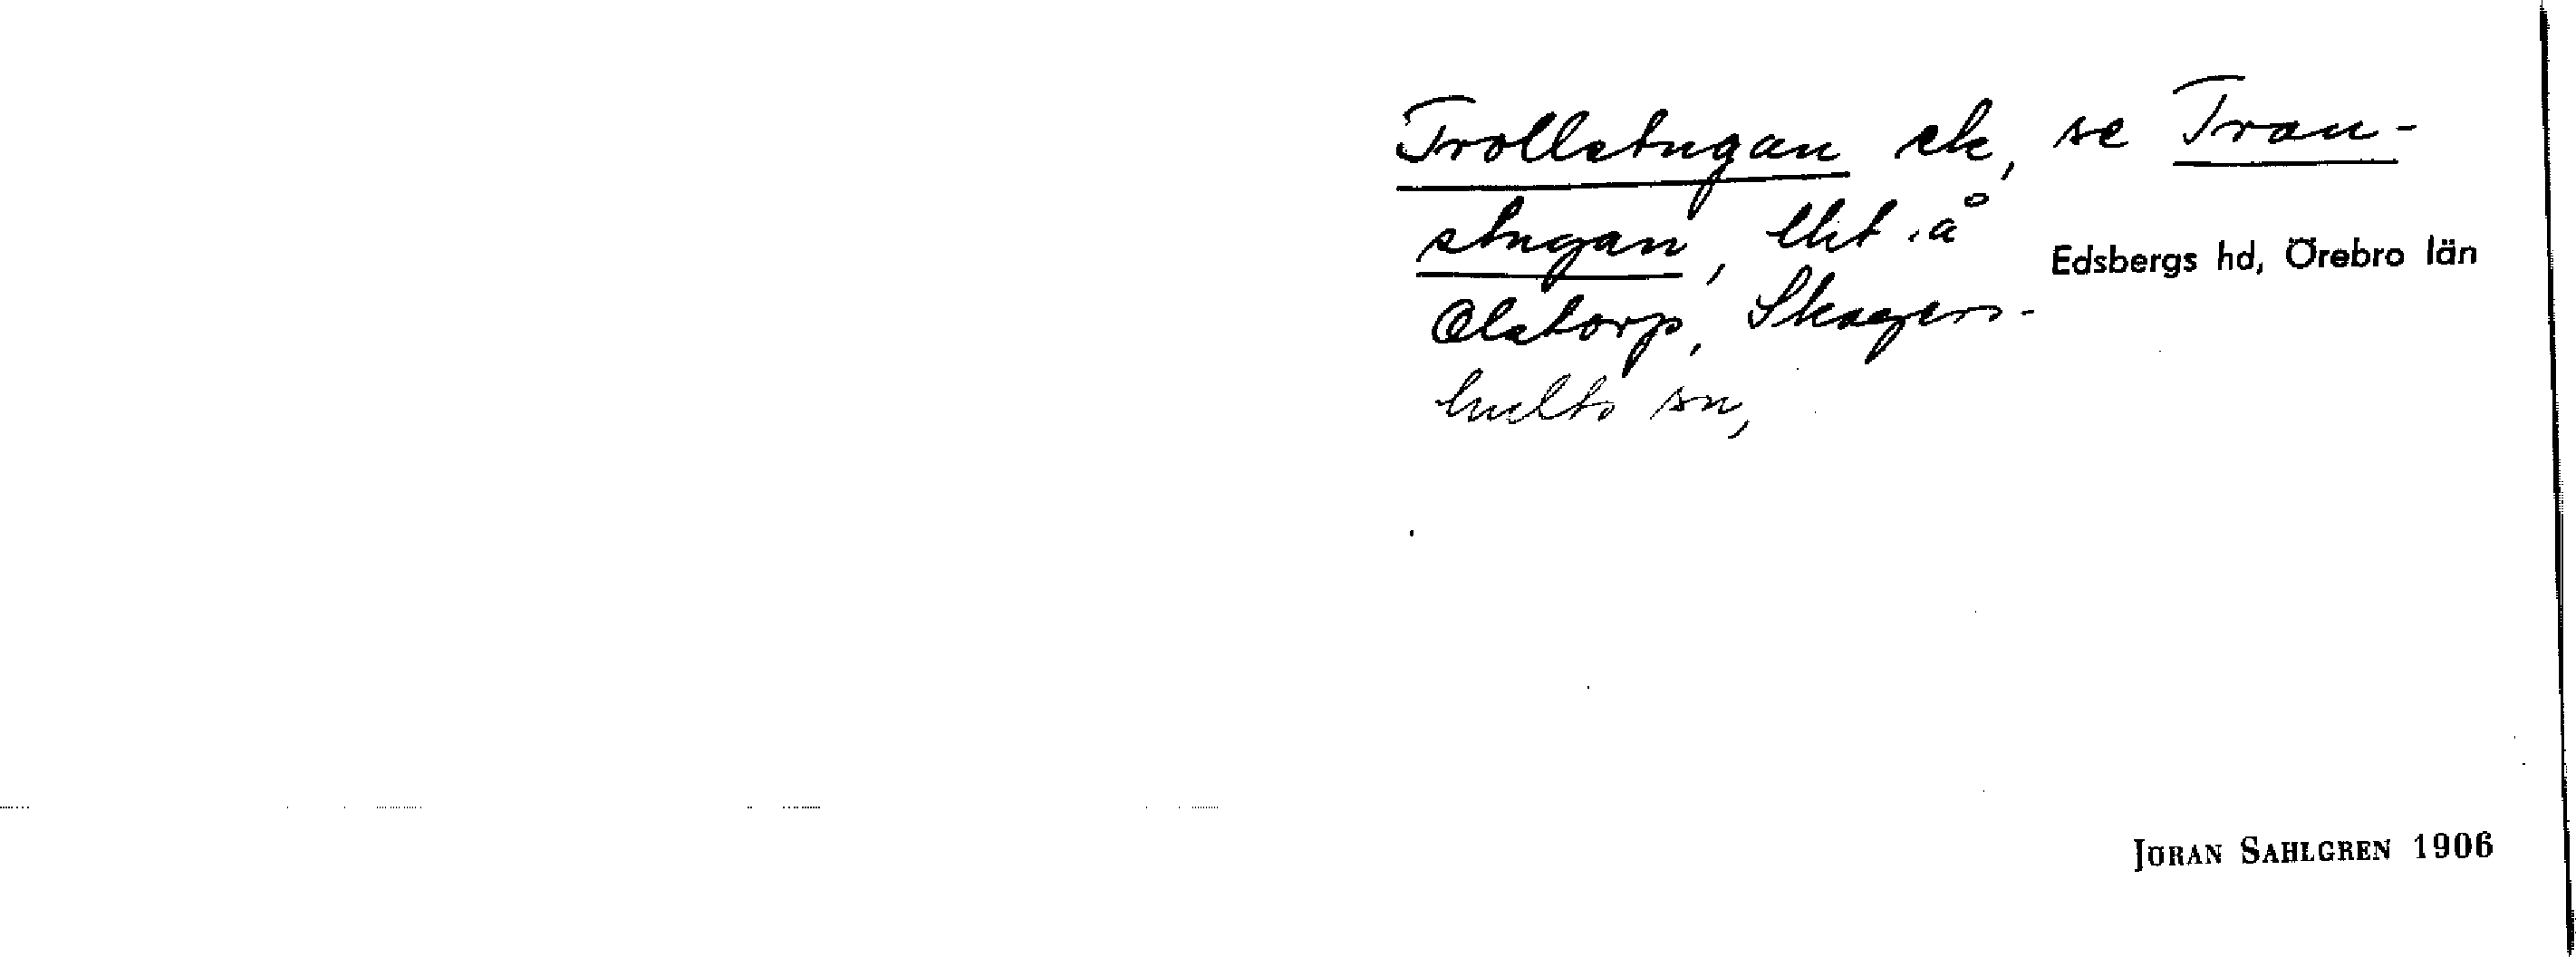 Trollstugan ek, se Tran-
stugan, lht å
Olstorp, Skagers-
hults sn,
Edsbergs hd, Örebro län
JÖRAN SAHLGREN 1906